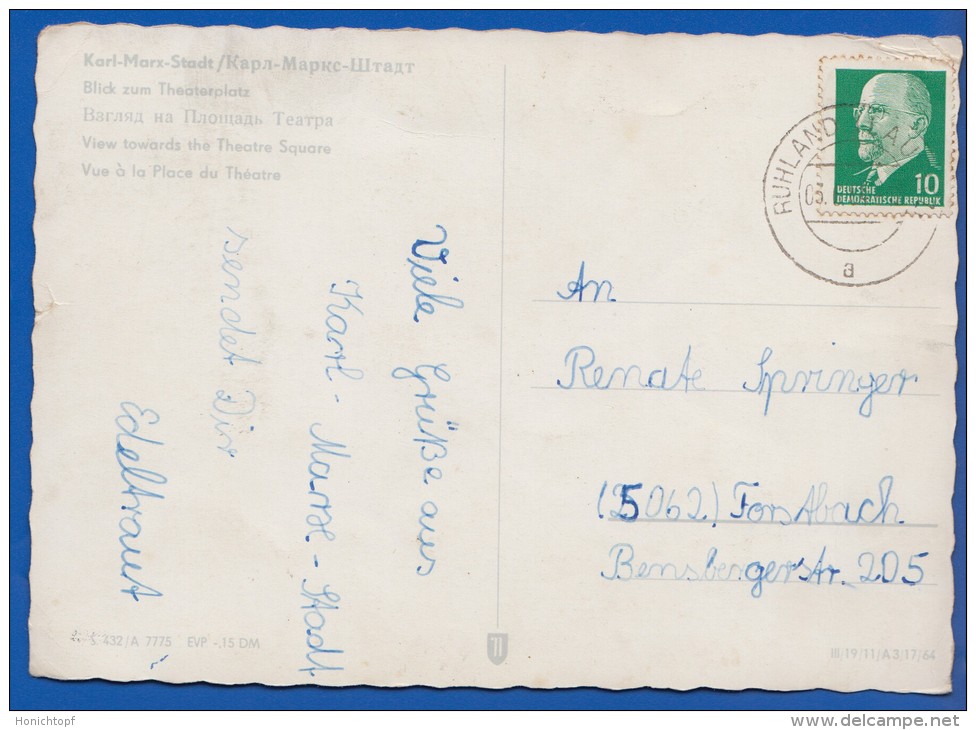 Karl-Marx-Stadt/Карл-Маркс-Штадт
Blick zum Theaterplatz
Взгляд на Площадь Театра
View towards the Theatre Square
Vue à la Place du Théatre
Viele Grüße aus
Karl-Marx-Stadt
sendet Dir
Edeltraut
RUHLAND
03.
a
10
DEUTSCHE
DEMOKRATISCHE REPUBLIK
An
Renate Springer
(5062) Forstbach
Bensbergerstr. 205
432/A 7775 EVP -.15 DM
III/19/11/A3/17/64
Honichtopf
www.delcampe.net